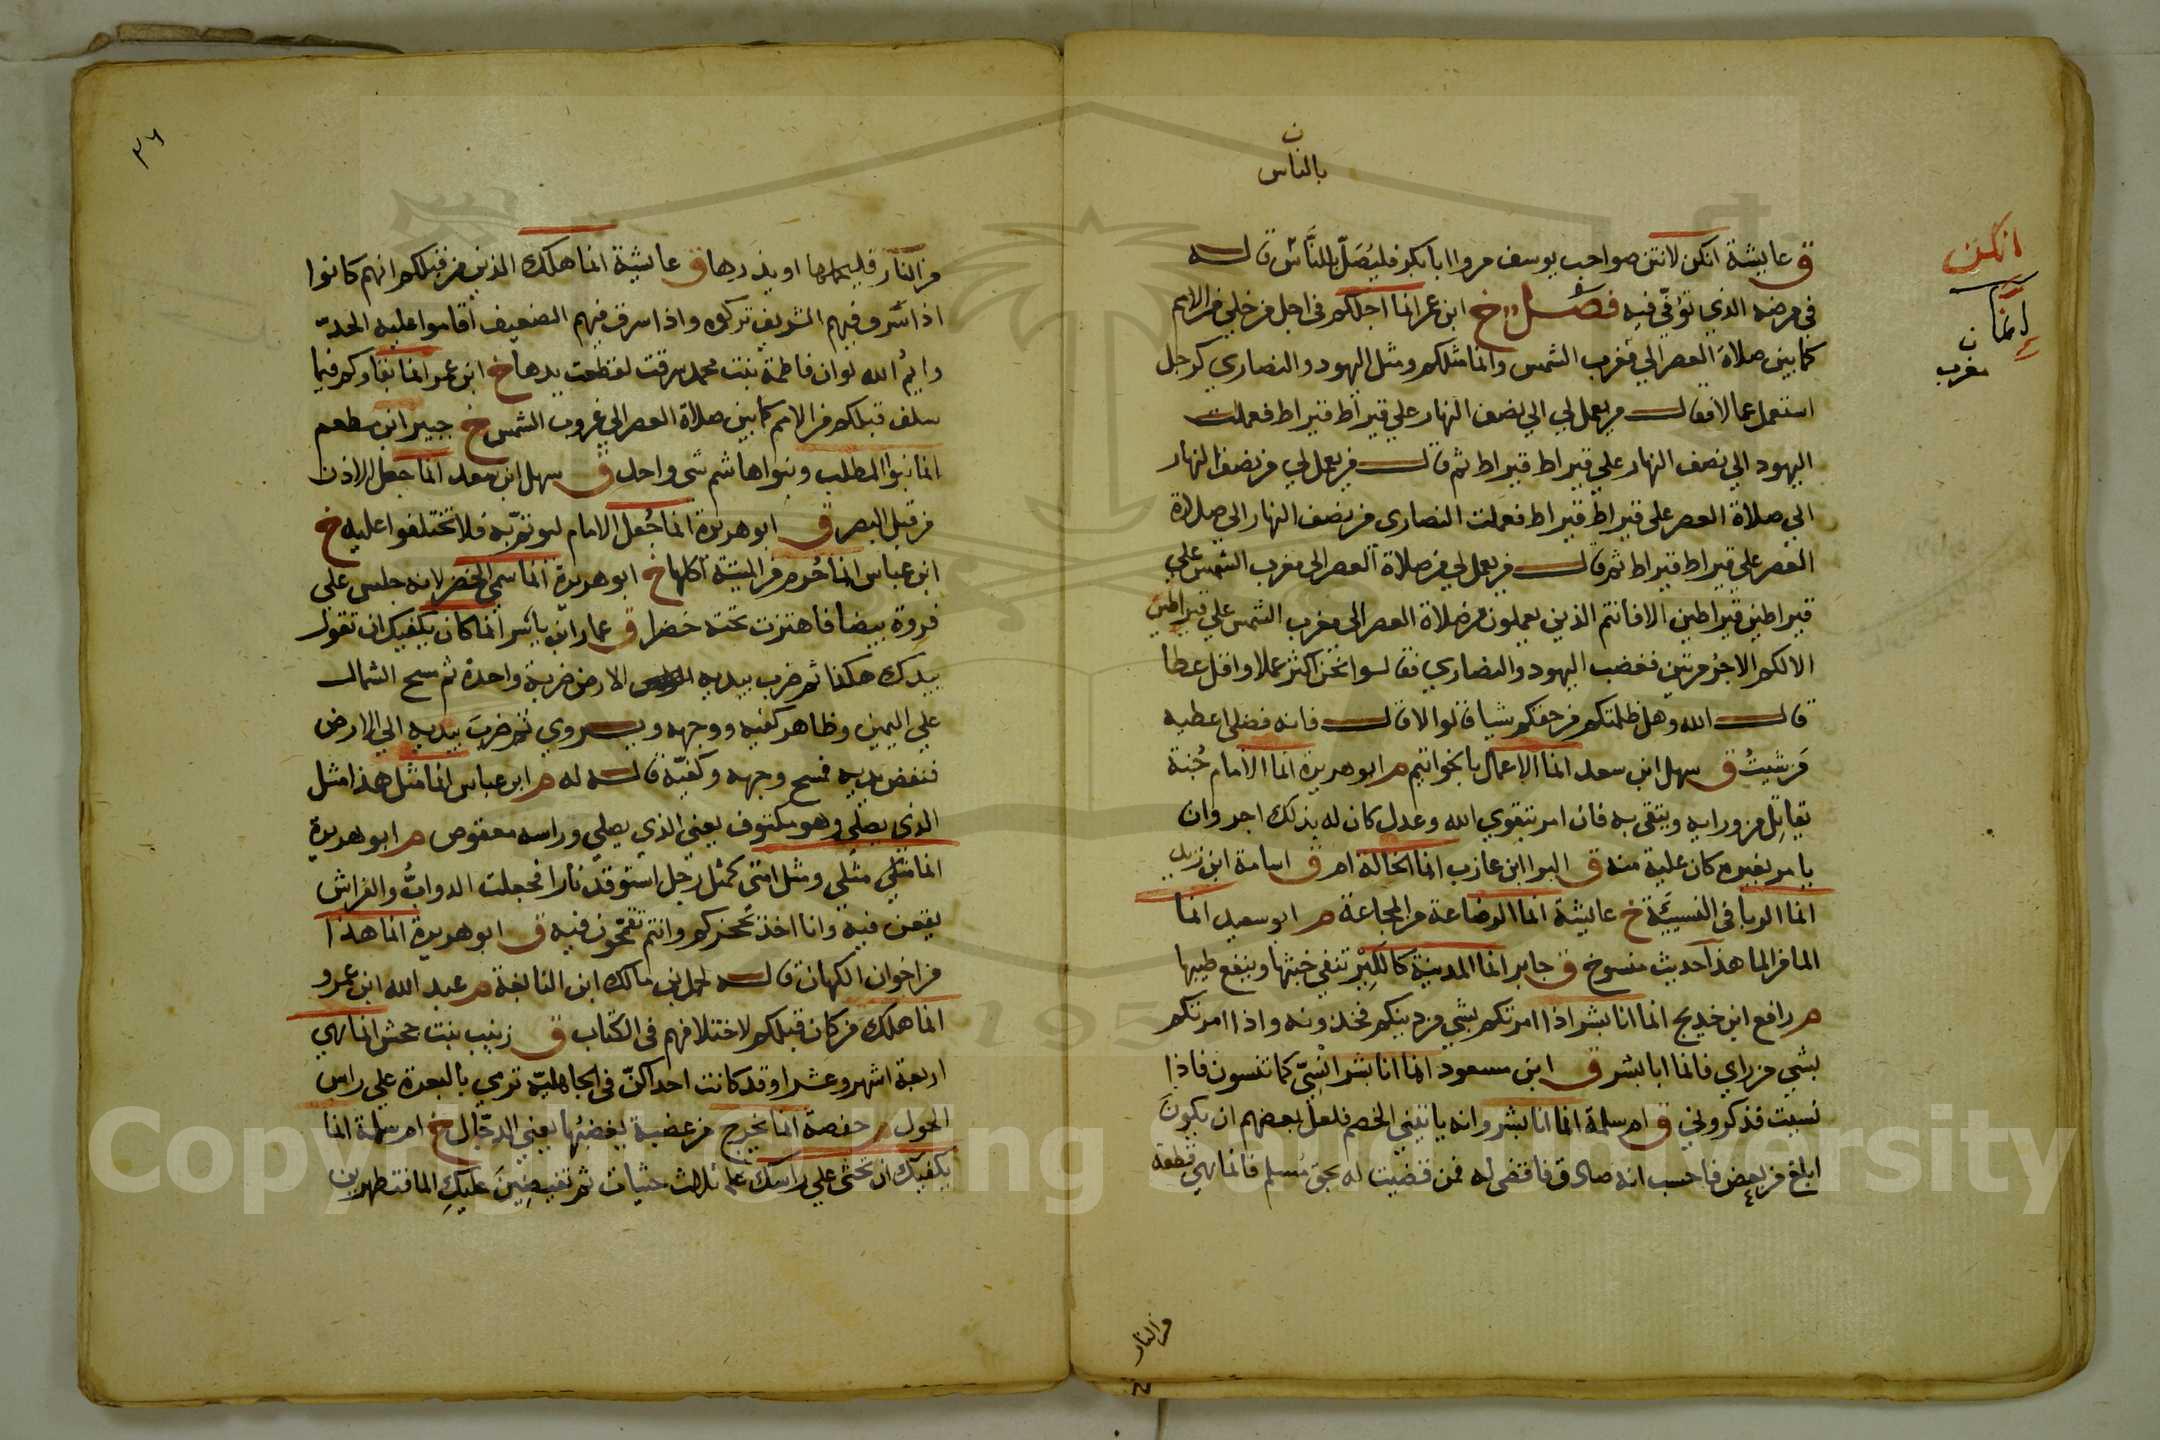 ن
بالناس
انكن
إنما
ن
مغرب
ق عايشة انكن لانتن صواحب يوسف مروا ابابكر فليُصَلّ بالنَّاس قال
في مرضه الذي توفّي فيه فصل خ ابن عمر انما اجلكم في اجل من خلي من الامم
كما بين صلاة العصر الي مغرب الشمس وانما مثلكم ومثل اليهود والنصاري كرجل
استعمل عمالا فقال من يعمل لي الي نصف النهار علي قيراط قيراط فعملت
اليهود الي نصف النهار علي قيراط قيراط ثم قال من يعمل لي من نصف النهار
الي صلاة العصر علي قيراط قيراط فعملت النصاري من نصف النهار الي صلاة
العصر علي قيراط قيراط ثم قال من يعمل لي من صلاة العصر الي مغرب الشمس علي
قيراطين قيراطين الا فانتم الذين يعملون من صلاة العصر الي مغرب الشمس علي قيراطين
الا لكم الاجر مرتين فغضب اليهود والنصاري فقالوا نحن اكثر عملا واقل عطا
قال الله وهل ظلمتكم من حقكم شيا قالوا لا قال فانه فضلي اعطيه
من شيتُ ق سهل ابن سعد انما الاعمال بالخواتيم م ابو هريرة انما الامام جُنة
يقاتل من ورايه ويتقي به فان امر بتقوي الله وعدل كان له بذلك اجر وان
يامر بغيره كان عليه منه ق البرا ابن عازب انما الخالة ام ق اسامة ابن زيد
انما الربا في النسيّة خ عايشة انما الرضاعة من المجاعة م ابو سعيد انما
الما من الما هذا حديث منسوخ ق جابر انما المدينة كالكير تنفي خبثها وينصع طيبها
م رافع ابن خديج انما انا بشر اذا امرتكم بشي من دينكم فخذو به واذا امرتكم
بشي من راي فانما انا بشر ق ابن مسعود انما انا بشر انسيّ كما تنسون فاذا
نسيت فذكروني ق ام سلمة انما انا بشر وانه ياتيني الخصم فلعل بعضهم ان يكون
ابلغ من بعض فاحسب انه صادق فاقضي له فمن قضيت له بحق مسلم فانما هي قطعة
من النار
٣٦
من النار فليحملها او يذرها ق عايشة انما هلك الذين من قبلكم انهم كانوا
اذا سرق فيهم الشريف تركوه واذا سرق فيهم الضعيف أقاموا عليه الحدّ
وايمُ الله لو ان فاطمة بنت محمد سرقت لقطعت يدها خ ابن عمر انما بقاوكم فيما
سلف قبلكم من الامم كما بين صلاة العصر الي غروب الشمس خ جبير ابن مطعم
انما بنوا المطلب وبنوا هاشم شي واحد ق سهل ابن سعد انما جعل الاذن
من قبل البصر ق ابو هريرة انما جُعل الامام ليوتمّ به فلا تختلفوا عليه خ
ابن عباس انما حُرم من الميتة أكلها خ ابو هريرة انما سمي الخضر لانه جلس علي
فروة بيضا فاهتزت تحته خضرا ق عمار ابن ياسر انما كان يكفيك ان تقول
بيدك هكذا ثم ضرب بيديه الارض ضربة واحدة ثم مسح الشمال
علي اليمين وظاهر كفيه ووجهه ويروي ثم ضرب بيديه الي الارض
فنفض يديه فمسح وجهه وكفيّه قال له م ابن عباس انما مثل هذا مثل
الذي يصلي وهو مكتوف يعني الذي يصلي وراسه معقوص م ابو هريرة
انما مثلي ومثل امتي كمثل رجل استوقد نارا فجعلت الدوابُّ والفراش
يقعن فيه وانا اخذ بحجزكم وانتم تقحّمون فيه ق ابو هريرة انما هذا
من اخوان الكهان قال لحمل ابن مالك ابن النابغة م عبد الله ابن عمرو
انما هلك من كان قبلكم لاختلافهم في الكتاب ق زينب بنت جحش انما هي
اربعة اشهر وعشرا وقد كانت احداكنّ في الجاهلية ترمي بالبعرة علي راس
الحول م حفصة انما يخرج من غضبة يغضبُها يعني الدجّال خ ام سلمة انما
يكفيك ان تحثي علي راسك ثلاث حثيات ثم تفيضينَ عليكِ الما فتطهرين
Copyright © King Saud University
195